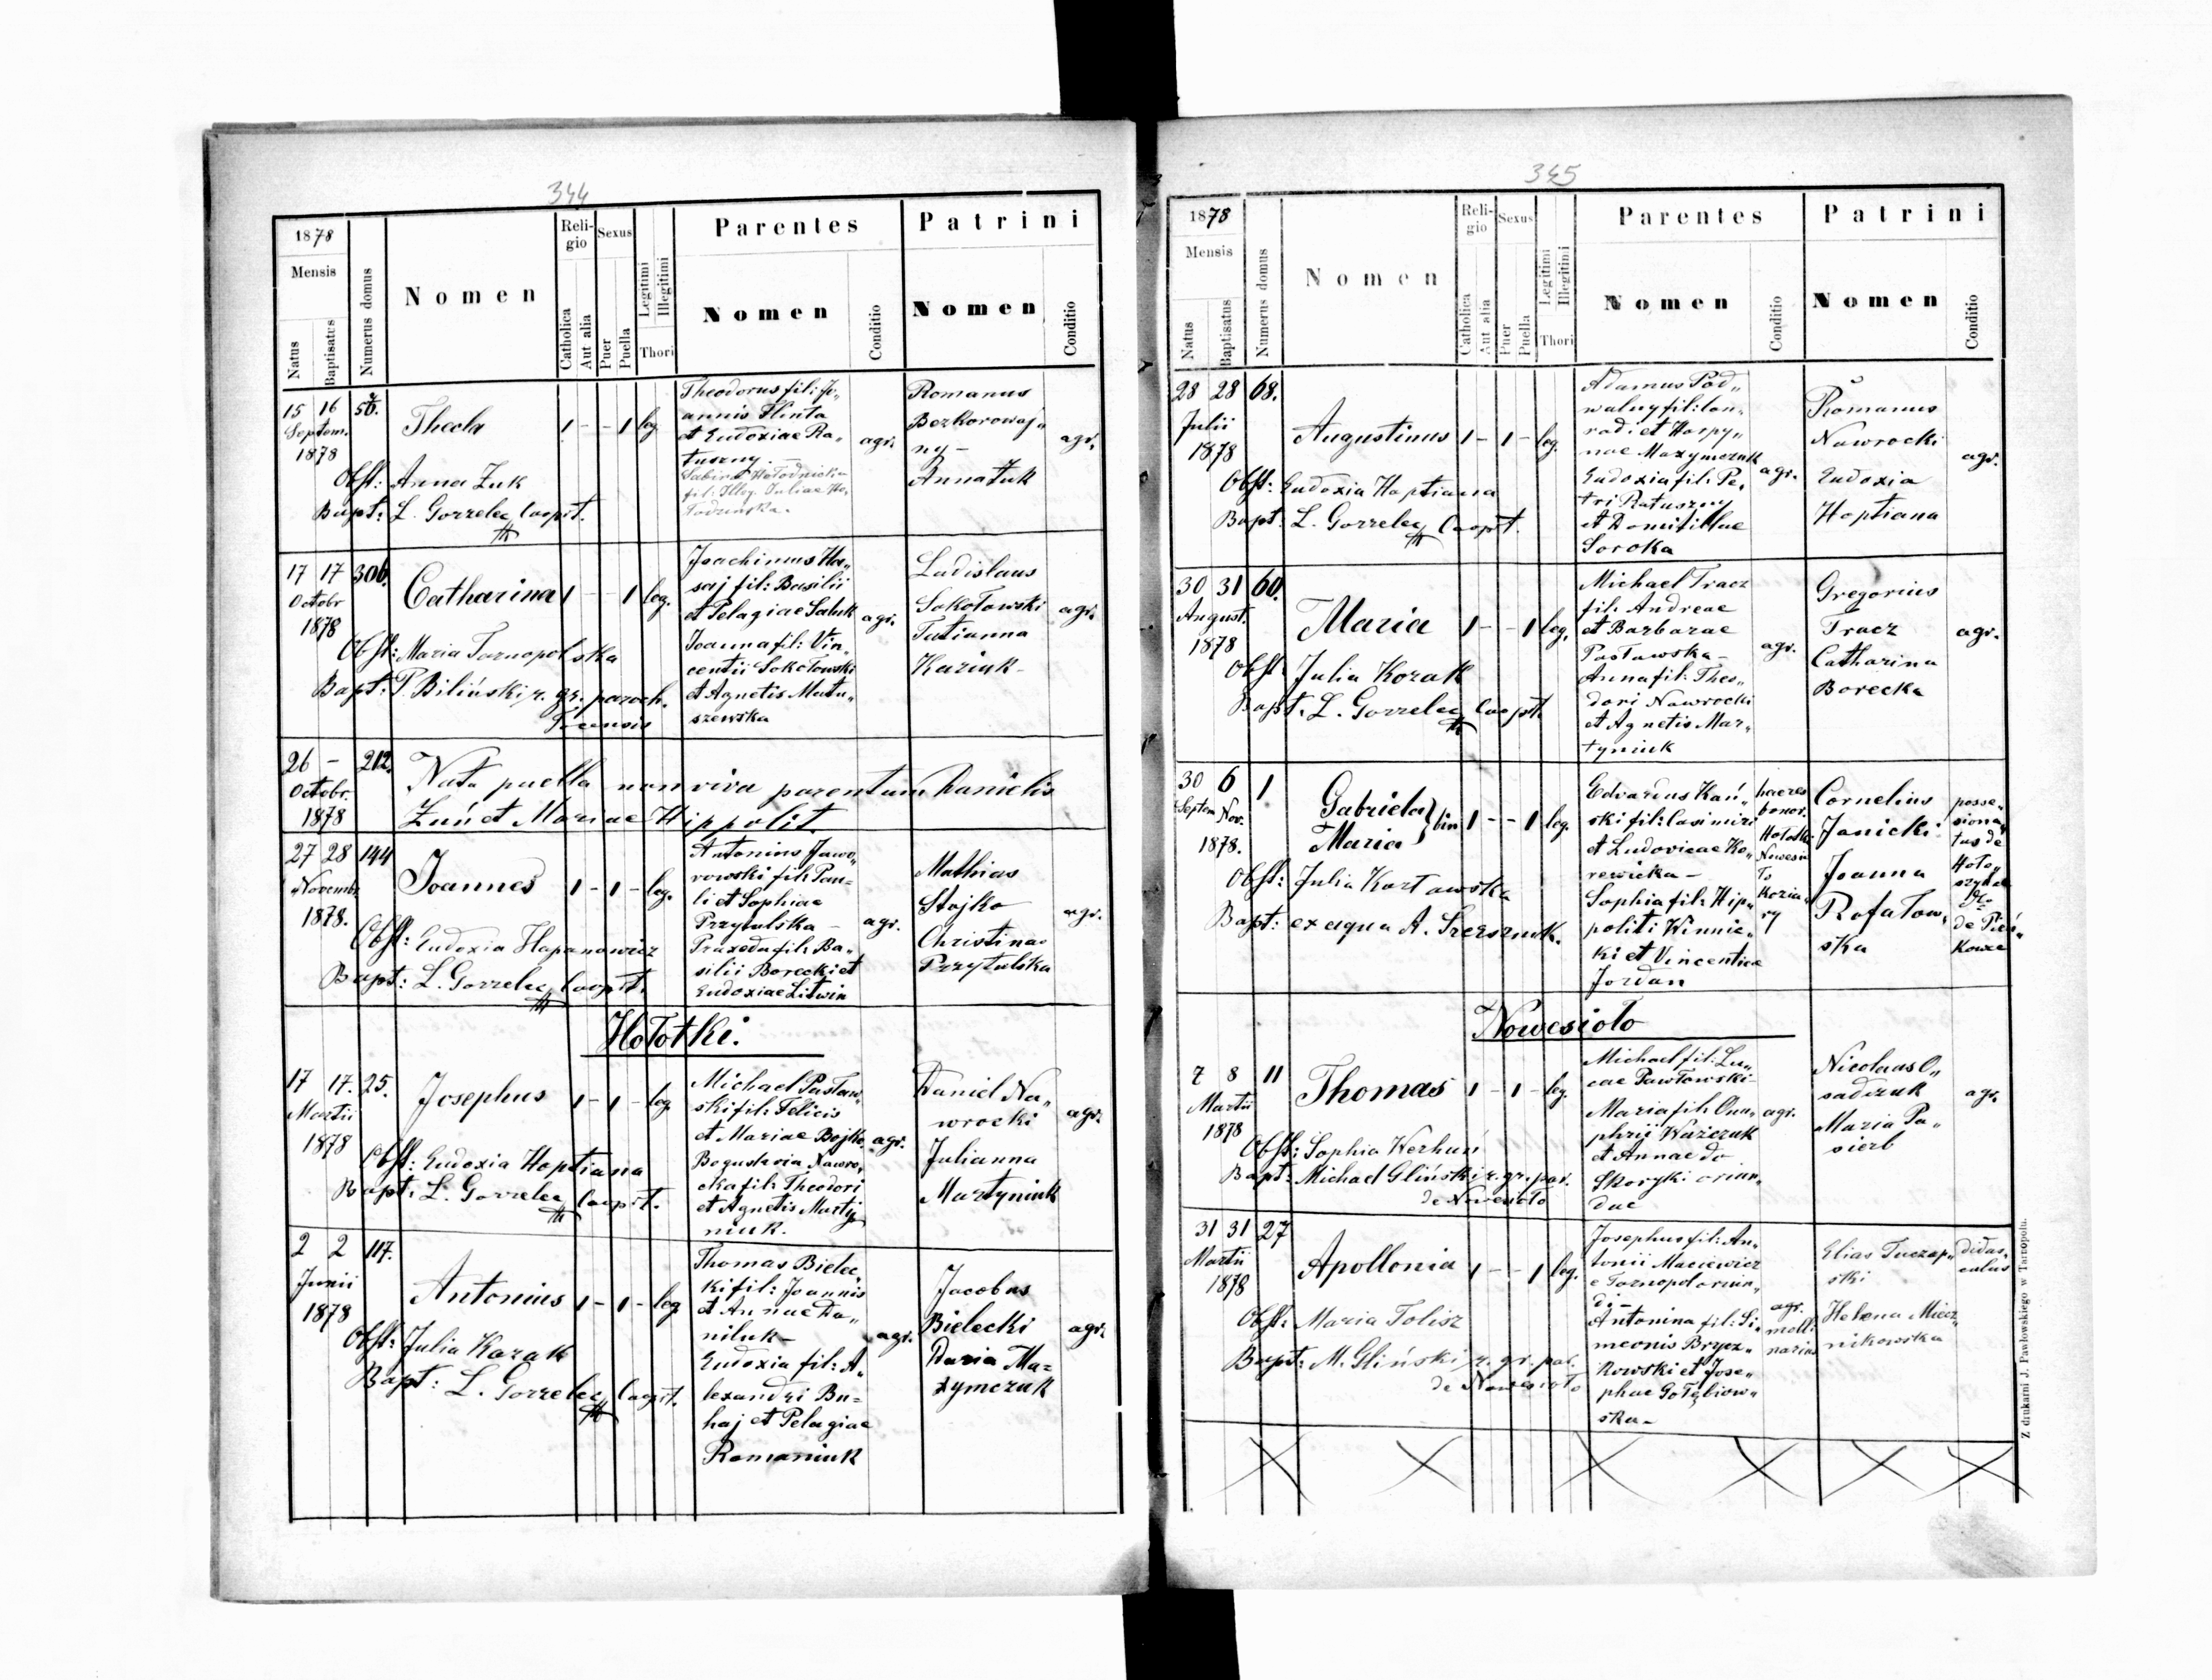 344
1878
Mensis
Natus
Baptisatus
Numerus domus
Nomen
Religio
Catholica
Aut alia
Sexus
Puer
Puella
Legitimi
Illegitimi
Thori
Parentes
Nomen
Conditio
Patrini
Nomen
Conditio
15 16
Septem.
1878
Thecla
1 - - 1 leg.
Obst: Anna Żuk
Bapt: L. Gorzelec Coopit.
Theodorus fil: Jo„
annis Hinta
et Eudoxiae Ra„
tuszny. -
agr.
Romanus
Bezkorowaj„
ny -
Anna Żuk
agr.
17 17 306.
Octobr
1878
Catharina 1 - - 1 leg.
Obst: Maria Tarnopolska
Bapt: P. Biliński r. gr. paroch.
Joachimus Ha„
saj fil: Basilii
et Pelagiae Saluk
Joanna fil: Vin„
centii Sokołowski
et Agnetis Matu„
szewska
agr.
Ladislaus
Sokołowski
Tatianna
Kaziuk -
agr.
26 - 212.
Octobr.
1878
Nata puella non viva parentum Danielis
Żuń et Mariae Hippolit
27 28 144
Novembr.
1878.
Joannes 1 - 1 - leg.
Obst: Eudoxia Hapanowicz
Bapt: L. Gorzelec Coopit.
Antonius Jawo„
rowski fil: Pau=
li et Sophiae
Przytulska -
Praxeda fil: Ba„
silii Borecki et
Eudoxiae Litwin
agr.
Mathias
Stojko
Christina
Przytulska
agr.
Hołotki.
17 17. 25.
Martii
1878
Josephus 1 - 1 - leg.
Obst: Eudoxia Hoptiana
Bapt: L. Gorzelec Coopit.
Michael Pastaw„
ski fil: Felicis
et Mariae Bojko.
Boguslavia Nawro„
cka fil: Theodori
et Agnetis Marty„
niuk.
agr.
Daniel Na„
wrocki
Julianna
Martyniuk
agr.
2 2 117.
Junii
1878
Antonius 1 - 1 - leg
Obst: Julia Kozak
Bapt: L. Gorzelec Coopit.
Thomas Bielec„
ki fil: Joannis
et Annae Da„
niluk -
Eudoxia fil: A„
lexandri Bu=
haj et Pelagiae
Romaniuk
agr.
Jacobus
Bielecki
Daria Ma=
xymczuk
agr.
345
1878
Mensis
Natus
Baptisatus
Numerus domus
Nomen
Religio
Catholica
Aut alia
Sexus
Puer
Puella
Legitimi
Illegitimi
Thori
Parentes
Nomen
Conditio
Patrini
Nomen
Conditio
28 28 68.
Julii
1878
Augustinus 1 - 1 - leg.
Obst: Eudoxia Hoptiana
Bapt: L. Gorzelec Coopit.
Adamus Pod„
walny fil: Con„
radi et Harpy„
nae Maxymczuk
Eudoxia fil: Pe„
tri Ratuszny
et Domitillae
Soroka
agr.
Romanus
Nawrocki
Eudoxia
Hoptiana
agr.
30 31 60.
August.
1878
Maria 1 - - 1 leg.
Obst: Julia Kozak
Bapt: L. Gorzelec Coopit.
Michael Tracz
fil: Andreae
et Barbarae
Pastawska -
Anna fil: Theo„
dori Nawrocki
et Agnetis Mar„
tyniuk
agr.
Gregorius
Tracz
Catharina
Borecka
agr.
30 6 1
Septem Nov.
1878.
Gabriela
Maria } bin 1 - - 1 leg.
Obst: Julia Kartawska
Bapt: ex aqua A.
Edvardus Kań„
ski fil: Casimiri
et Ludovicae Ko„
rewicka -
Sophia fil: Hip„
politi Winnic„
ki et Vincentiae
Jordan
haeres
bonor.
Hołotki
Nowesio
ło
Kozia„
ry
Cornelius
Janicki
Joanna
Rafałow„
ska
posse„
siona„
tus de
de Pień„
kowce
Nowesioło
7 8 11
Martii
1878
Thomas 1 - 1 - leg.
Obst: Sophia Werhuń
Bapt: Michael Gliński r. gr. par.
de Nowesioło
Michael fil: Lu„
cae Pawłowski -
Maria fil: Onu„
phrii Ważczuk
et Annae do
Skoryki oriun„
dae
agr.
Nicolaus O„
sadczuk
Maria Pa„
sierb
agr.
31 31 27
Martii
1878
Apollonia 1 - - 1 leg.
Obst: Maria Tolisz
Bapt: M. Gliński r. gr. par.
de Nowesioło
Josephus fil: An„
tonii Maciewicz
e Tarnopol oriun„
di -
Antonina fil: Si„
meonis Brycz„
kowski et Jose„
phae Gołębiow„
ska -
agr.
moli
narius
Elias Tuczap„
ski
Helena Miecz„
nikowska
didas„
calus
Z drukarni J. Pawłowskiego w Tarnopolu.